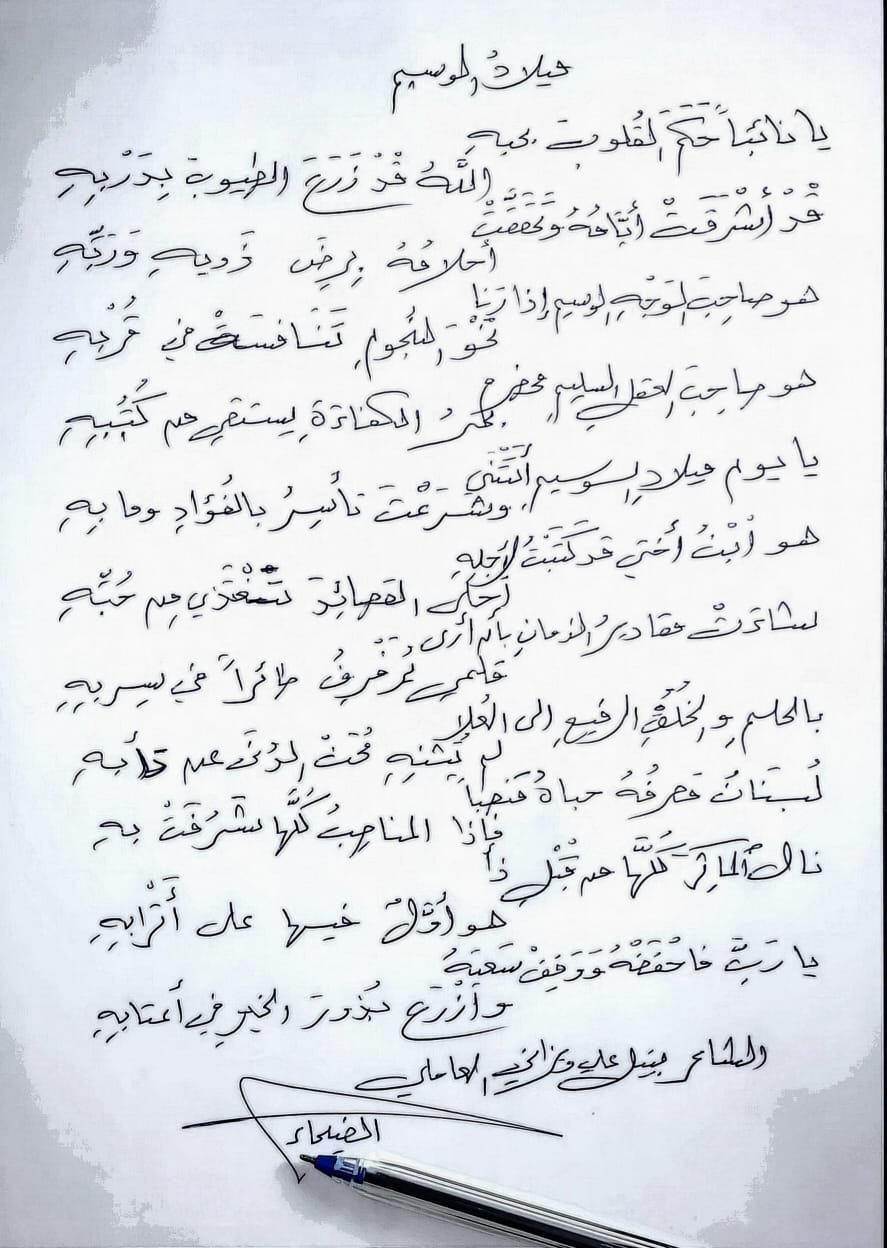 ميلادُ الوسيم
يا نائباً حَكَمَ القُلوبَ بحبهِ
اللَّهُ قَدْ زَرَعَ الطيوبَ بِدَرْبِهِ
قَدْ أَشْرَقَتْ أيَّامُهُ وَتَحَقَّقَتْ
أحلامُهُ بِرِضَى ذَويهِ وَرَبِّهِ
هو صاحِبُ الوَجْهِ الوسيمِ إذا رَنا
نَحْوَ النُّجومِ تَنَافَسَتْ في قُرْبِهِ
هو صاحِبُ العقلِ السليمِ مخضرم
بحرُ الكفاءَةِ يستقي من كُتُبِهِ
يا يوم ميلادِ الوسيمِ أَتَيْتَني
وشَرَعْتَ تأسِرُ بالفُؤادِ وما بِهِ
هو اْبْنُ أختي قد كَتَبْتُ لأجلِهِ
أحلى القصائِدَ تَغْتَذي مِن حُبِّهِ
شاءَتْ مقاديرُ الزمانِ بأن أرى
قلمي يُرَفْرِفُ طائراً في سِربِهِ
بالحلمِ والخُلُقِ الرفيعِ إلى العُلا
لم يَثْنِهِ مُحَنُ الدُنَى عن دَأبِهِ
لُبنَانُ مَصرِفُهُ حباهُ مَنصِباً
فإذا المناصِبُ كُلُّها شَرُفَتْ بهِ
نالَ المآثِرَ كُلَّها من قَبْلِ ذا
هو أوَّلٌ فيها على أَتْرابِهِ
يا رَبِّ فاحْفَظْهُ وَوَفِقْ سَعيَهُ
وَاْزْرَع بُذُورَ الخيرِ في أعتابِهِ
الشاعر علي العاملي